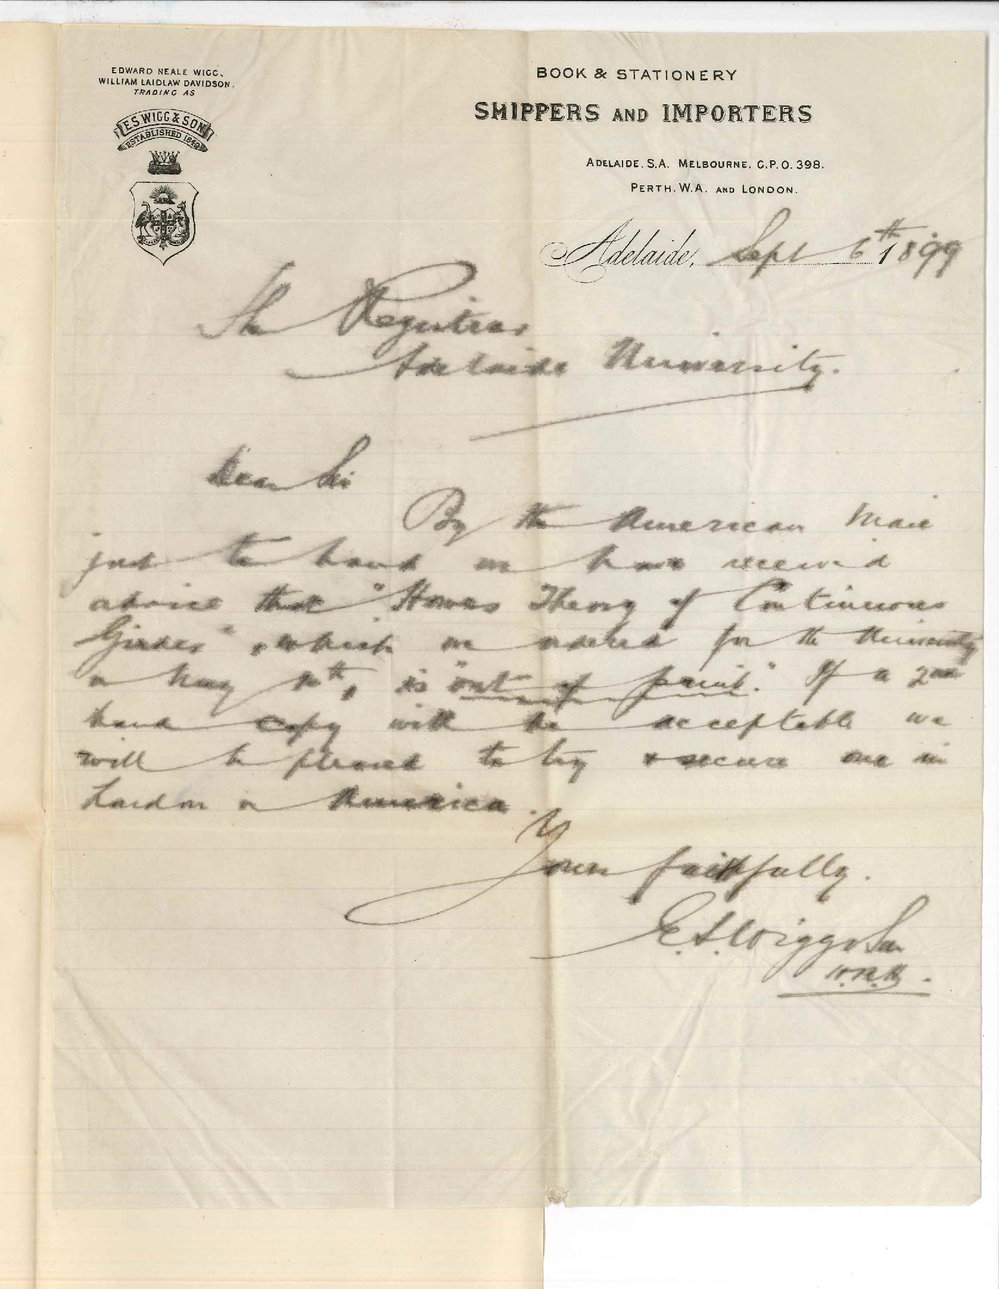 EDWARD NEALE WIGG,
WILLIAM LAIDLAW DAVIDSON,
TRADING AS
E.S. WIGG & SON
ESTABLISHED 1849
BOOK & STATIONERY
SHIPPERS AND IMPORTERS
ADELAIDE. S.A. MELBOURNE. G.P.O. 398.
PERTH. W.A. AND LONDON.
Adelaide, Sept 6th 1899
The Registrar
Adelaide University.
Dear Sir
By the American Mail
just to hand we have received
advice that "Howes Theory of Continuous
Girder", which we ordered for the University
on May, is "out of print". If a 2nd
hand copy will be acceptable we
will be pleased to try & secure one in
London or America.
Yours faithfully.
E.S. Wigg & Son